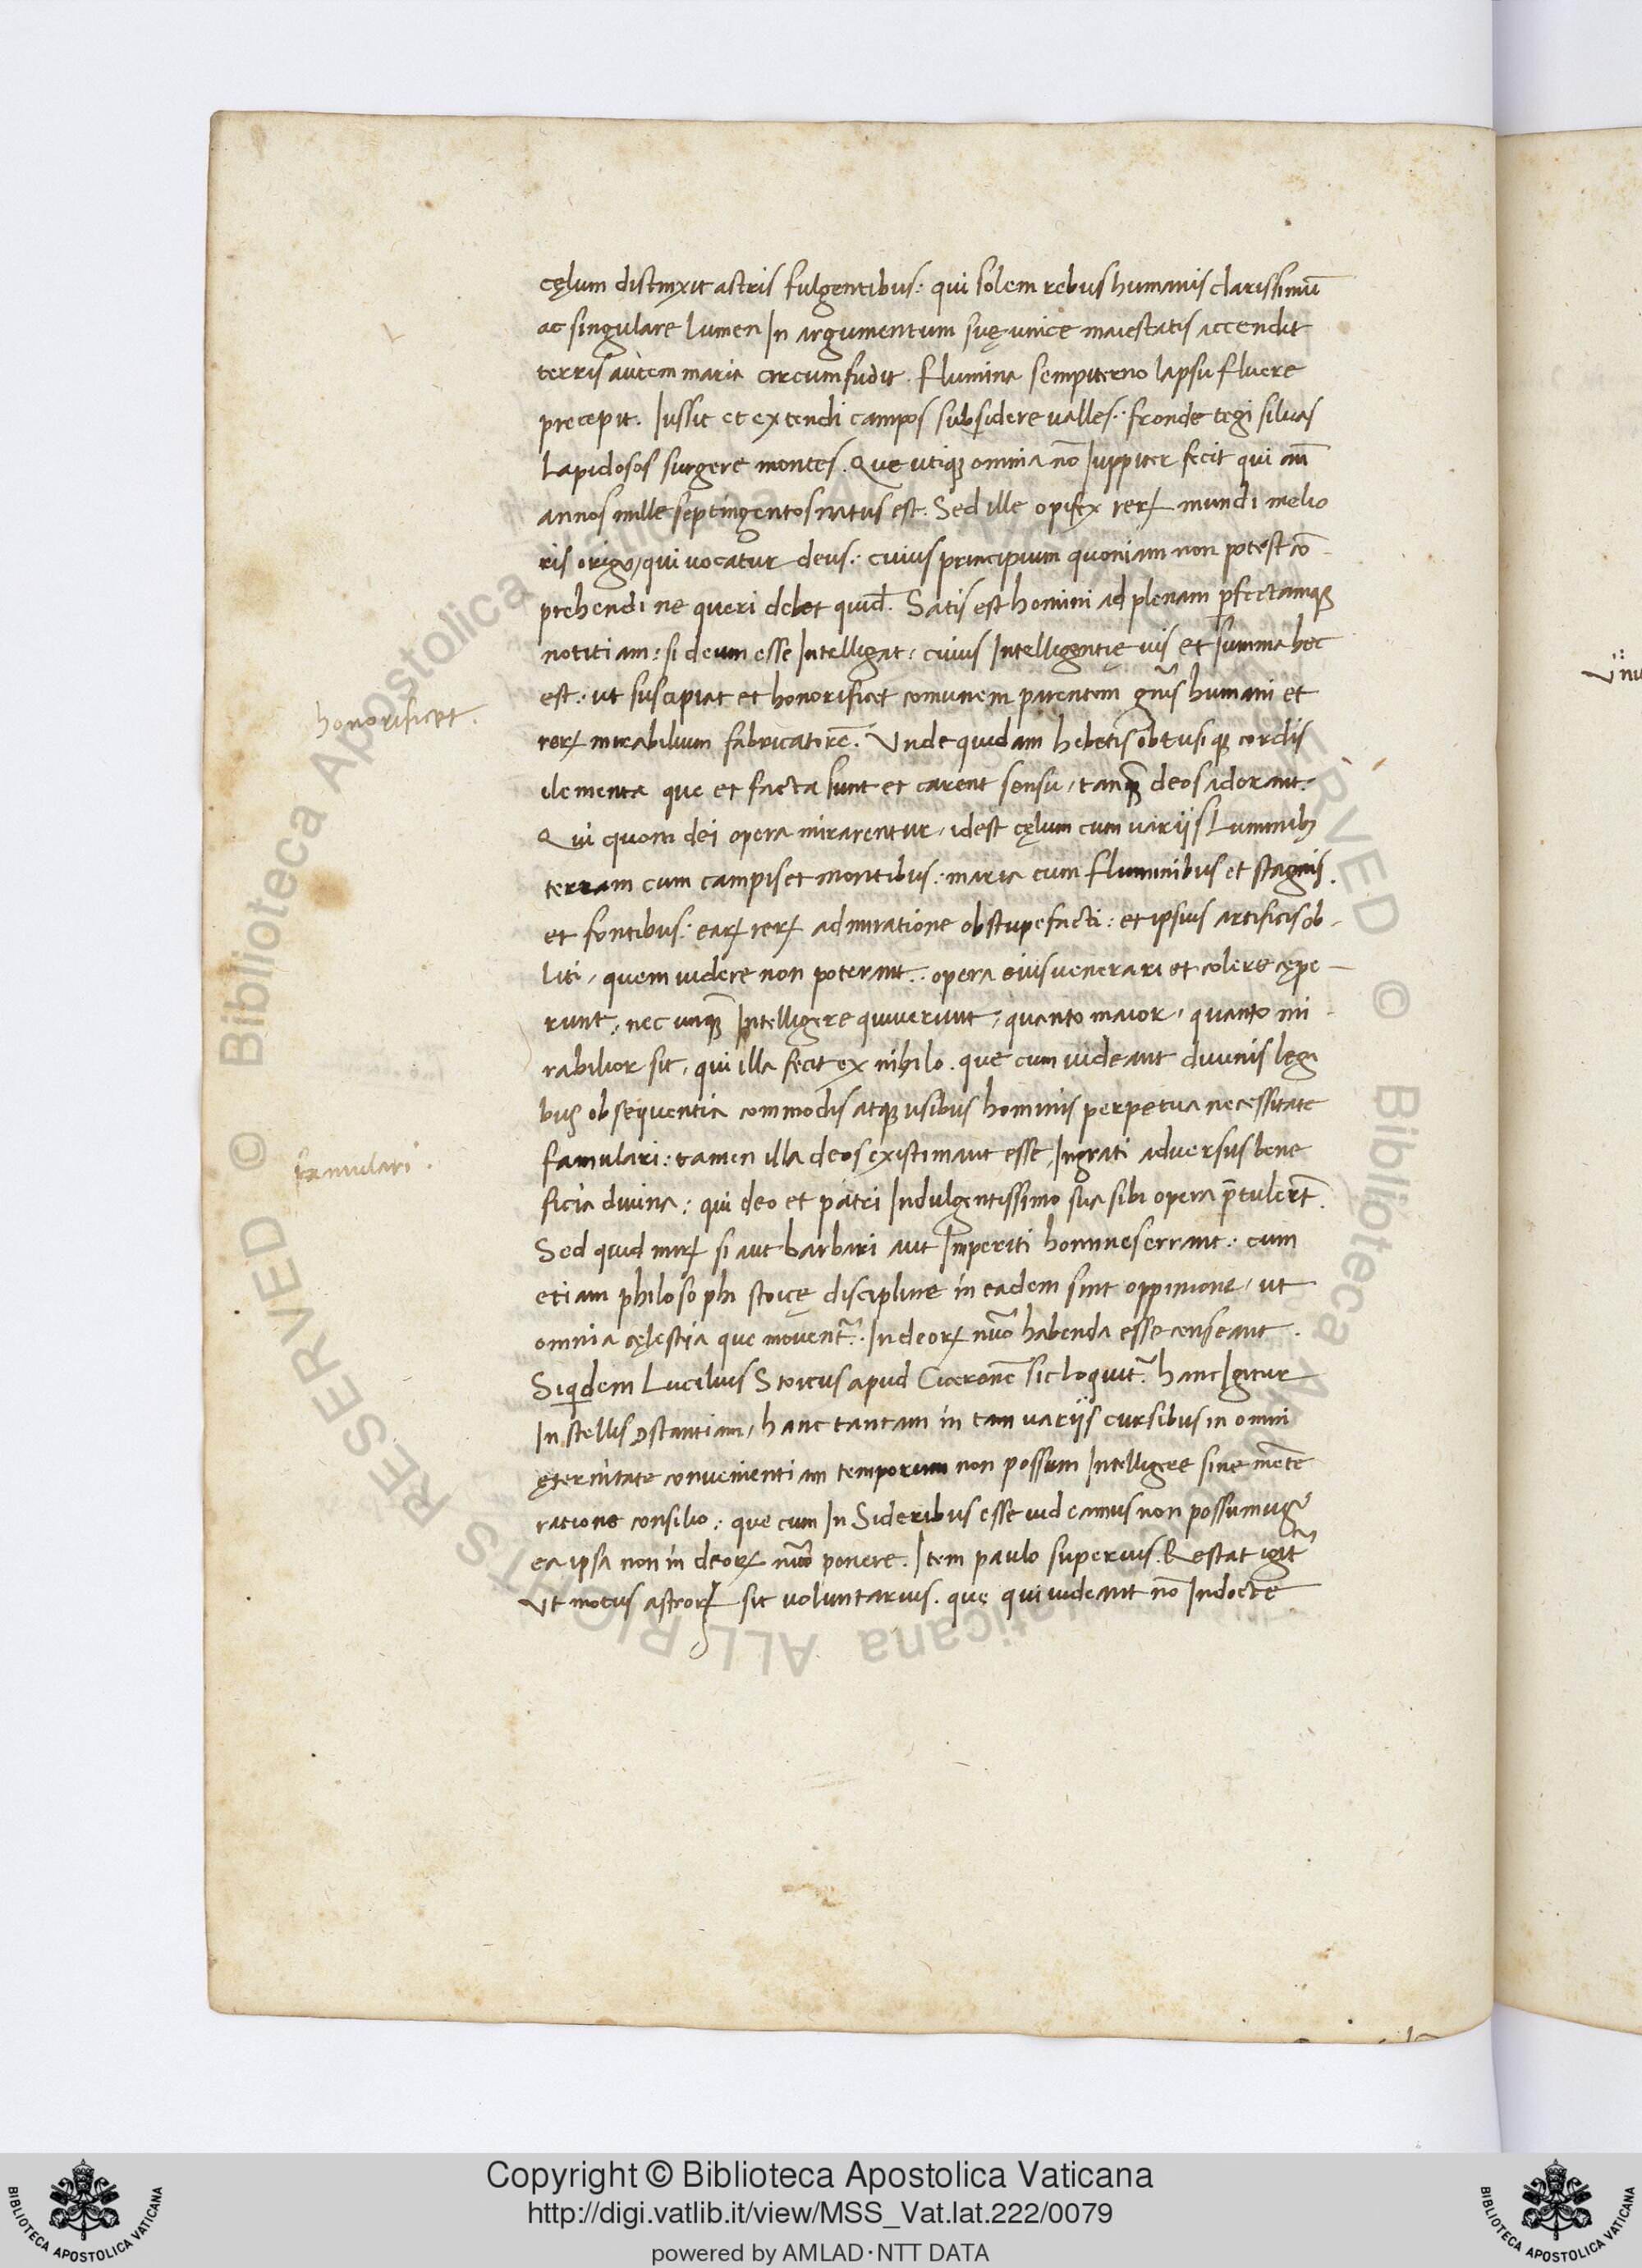 cęlum distinxit astris fulgentibus: qui solem rebus humanis clarissimū
ac singulare lumen In argumentum suę unice maiestatis accendit
terris autem maria circumfudit. flumina sempiterno lapsu fluere
precepit. Iussit et extendi campos subsidere valles: fronde tegi siluas
Lapidosos surgere montes. Que utiqꝫ omnia nō Iuppiter fecit qui an̄
annos mille septingentos natus est. Sed ille opifex rerꝝ mundi melio
ris origo, qui vocatur deus: cuius principium quoniam non potest cō-
prehendi ne queri debet quid̄. Satis est homini ad plenam ꝑfectamqꝫ
notitiam: si deum esse Intelligat, cuius Intelligentię uis et summa hec
est: ut suscipiat et honorificet comunem parentem gn̄is humani et
rerꝝ mirabilium fabricatorē. Unde quidam hebetis obtusiqꝫ cordis
elementa que et facta sunt et carent sensu, tanqꝫ deos adorant.
Qui quom dei opera mirarentur, idest cęlum cum variis Luminibꝫ
terram cum campis et montibus: maria cum fluminibus et stagnis.
et fontibus: earꝝ rerꝝ admiratione obstupefacti: et ipsius artificis ob-
liti, quem uidere non poterant: opera eius venerari et colere cępe-
runt, nec unqꝫ Intelligere quiuerunt, quanto maior, quanto mi
rabilior sit, qui illa fecit ex nihilo. que cum uideant diuinis legi
bus obsequentia commodis atqꝫ usibus hominis perpetua necessitate
famulari: tamen illa deos existimant esse, Ingrati adversus bene
ficia diuina: qui deo et patri Indulgentissimo sua sibi opera p̄tulert̄.
Sed quid mirꝝ si aut barbari aut Imperiti homines errant: cum
etiam philosophi stoicę discipline in eadem sint oppinione, ut
omnia cęlestia que movent᷑: In deorꝝ nūo habenda esse censeant.
Siqdem Lucilius Stoicus apud Ciceronē sic loquit᷑. hanc Igitur
In stellis ꝯstantiam, hanc tantam in tam variis cursibus in omni
ęternitate convenientiam temporum non possum Intelligere sine mēte
ratione consilio: que cum In Sideribus esse uideamus non possumus
ea ipsa non in deorꝝ nūo ponere. Item paulo superius. Restat igit᷑
ut motus astrorꝝ sit voluntarius. que qui uideant nō Indocte
honorificet.
famulari.
© Biblioteca Apostolica Vaticana ALL RIGHTS RESERVED
Copyright © Biblioteca Apostolica Vaticana
http://digi.vatlib.it/view/MSS_Vat.lat.222/0079
powered by AMLAD·NTT DATA
BIBLIOTECA APOSTOLICA VATICANA
BIBLIOTECA APOSTOLICA VATICANA